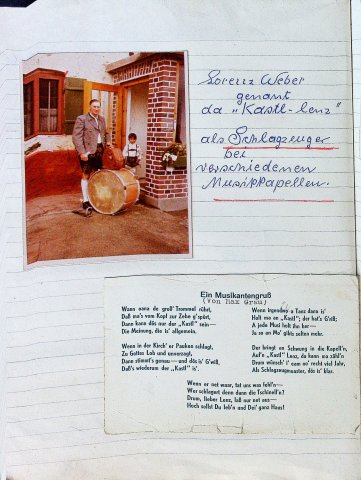 Lorenz Weber
genannt
da "Kastl-lenz"
als Schlagzeuger
bei
verschiedenen
Musikkapellen.
Ein Musikantengruß
(von Max Grau)
Wenn oana de groß' Trommel rührt,
Daß ma's vom Kopf zur Zehn g'spürt,
Dann kann dös nur der „Kastl" sein—
Die Meinung, die is' allgemein.
Wenn in der Kirch' er Pauken schlagt,
Zu Gottes Lob und unverzagt,
Dann stimmt's genau— und dös is' G'wiß,
Daß's wiederum der „Kastl" is'.
Wenn irgendwo a Tanz dann is'
Holt ma an „Kastl"; der hat's G'wiß;
A jede Musi holt ihn her—
Ja so an Mo' gibts selten mehr.
Der bringt an Schwung in die Kapell'n,
Auf'n „Kastl" Lenz, da kann ma zähl'n
Drum wünsch' i' eam no' recht viel Jahr,
Als Schlagzeugmaster, dös is' klar.
Wenn er net waar, tat uns was fehl'n—
Wer schlagert denn dann die Tschinell'n?
Drum, lieber Lenz, laß nur net aus—
Hoch sollst Du leb'n und Dei' ganz Haus!